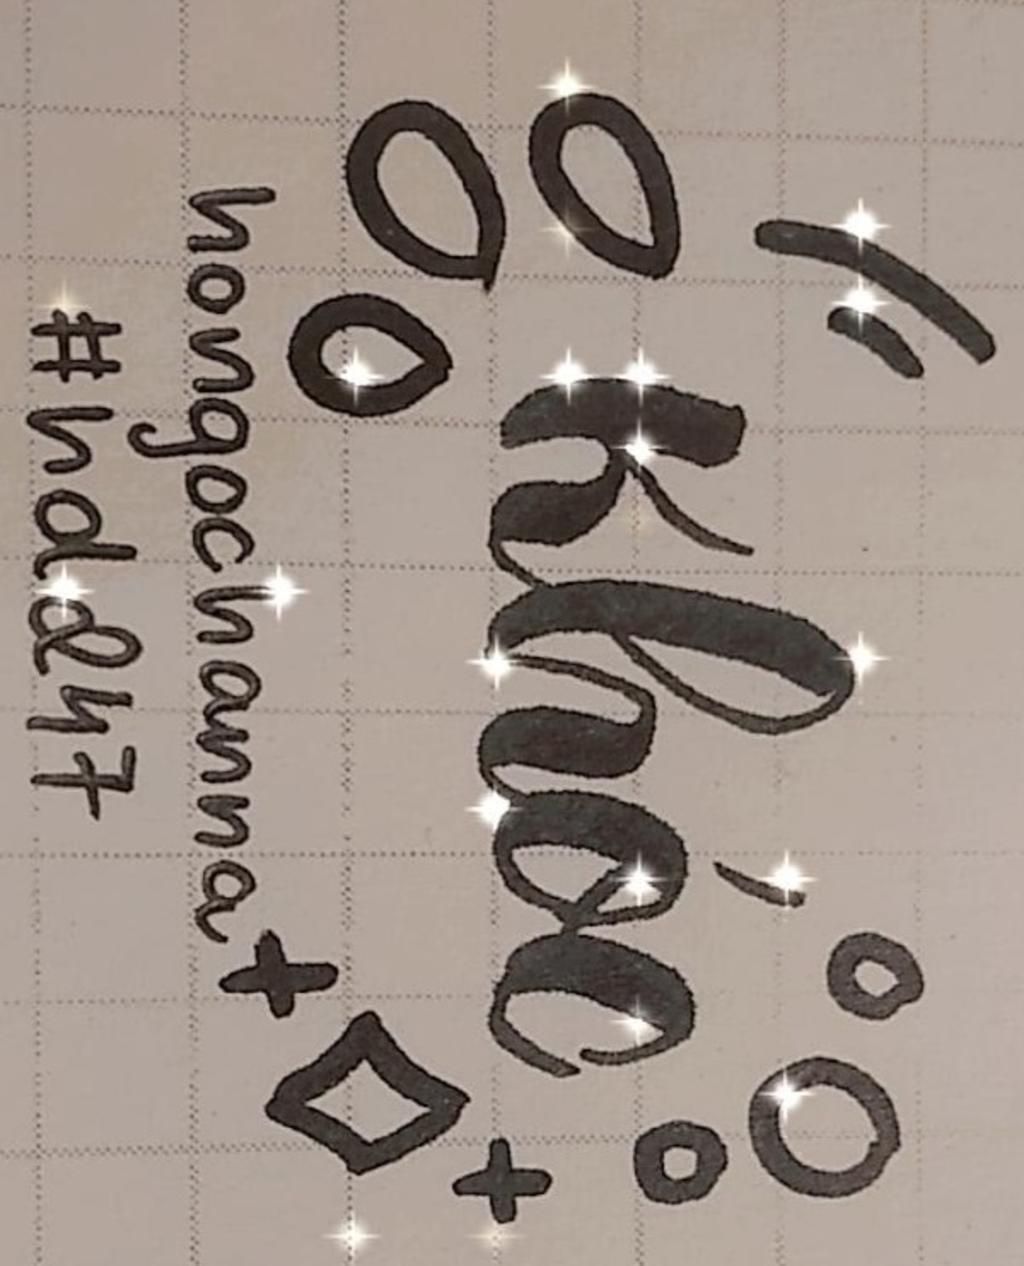 Khóc
hongochanna
#hddh47